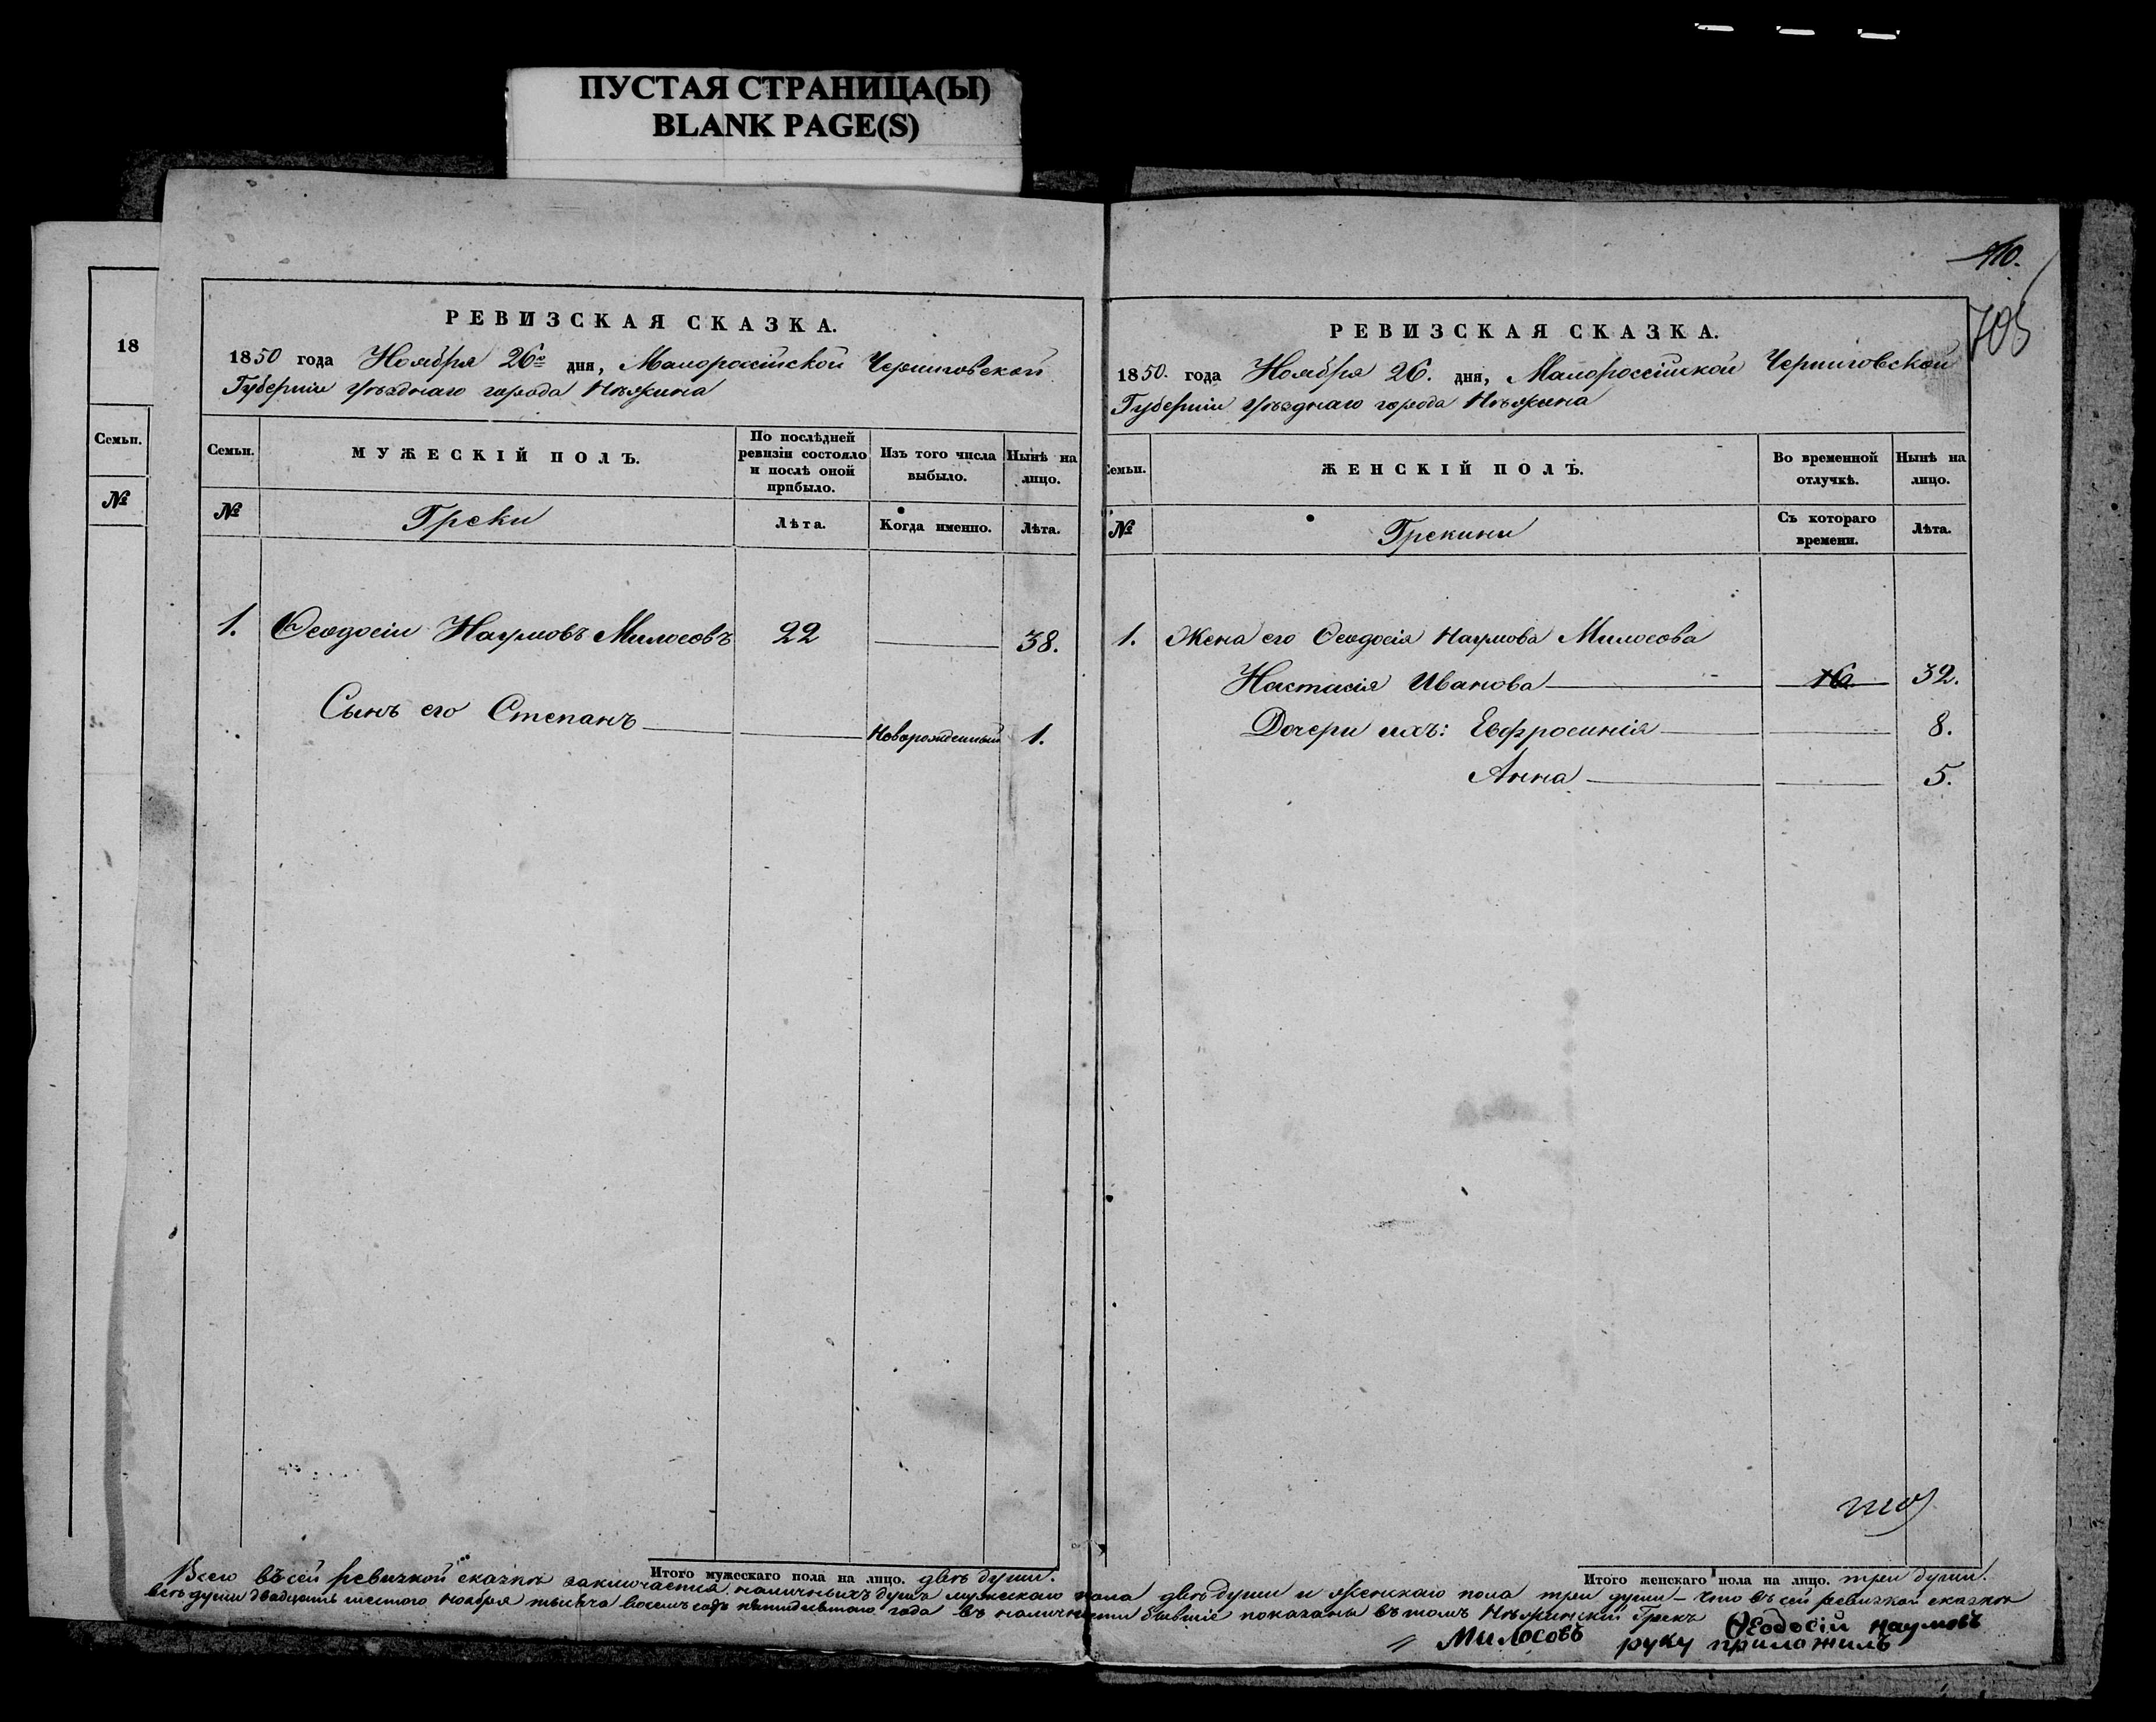 ПУСТАЯ СТРАНИЦА(Ы)
BLANK PAGE(S)
18
Семьи.
№
РЕВИЗСКАЯ СКАЗКА.
1850 года Ноября 26го дня, Малороссійской Черниговской
Губерніи уѣзднаго города Нѣжина
Семьи.
МУЖЕСКІЙ ПОЛЪ.
По послѣдней ревизіи состояло и послѣ оной прибыло.
Изъ того числа выбыло.
Нынѣ на лицо.
№
Греки
Лѣта.
Когда именно.
Лѣта.
1. Ѳеодосіи Наумовъ Милосовъ 22 38.
Сынъ его Степанъ Новорожденный 1.
Итого мужескаго пола на лицо. двѣ души.
410.
705
РЕВИЗСКАЯ СКАЗКА.
1850. года Ноября 26. дня, Малороссійской Черниговской
Губерніи уѣзднаго города Нѣжина
Семьи.
ЖЕНСКІЙ ПОЛЪ.
Во временной отлучкѣ.
Нынѣ на лицо.
№
Грекини
Съ котораго времени.
Лѣта.
1. Жена его Ѳеодосія Наумова Милосова
Настасія Иванова 32.
Дочери ихъ: Евфросинія 8.
Анна 5.
Итого женскаго пола на лицо. три души.
Всего въ сей ревизкой сказкѣ заключается наличныхъ душъ мужескаго пола двѣ души и женскаго пола три души – что въ сей ревизкой сказкѣ
всѣ души двадцать шестого Ноября тысяча восемь сотъ пятидесятаго года въ наличности бывшіе показаны въ томъ Нѣжинскій Грекъ Ѳеодосій Наумовъ
Милосовъ руку приложилъ